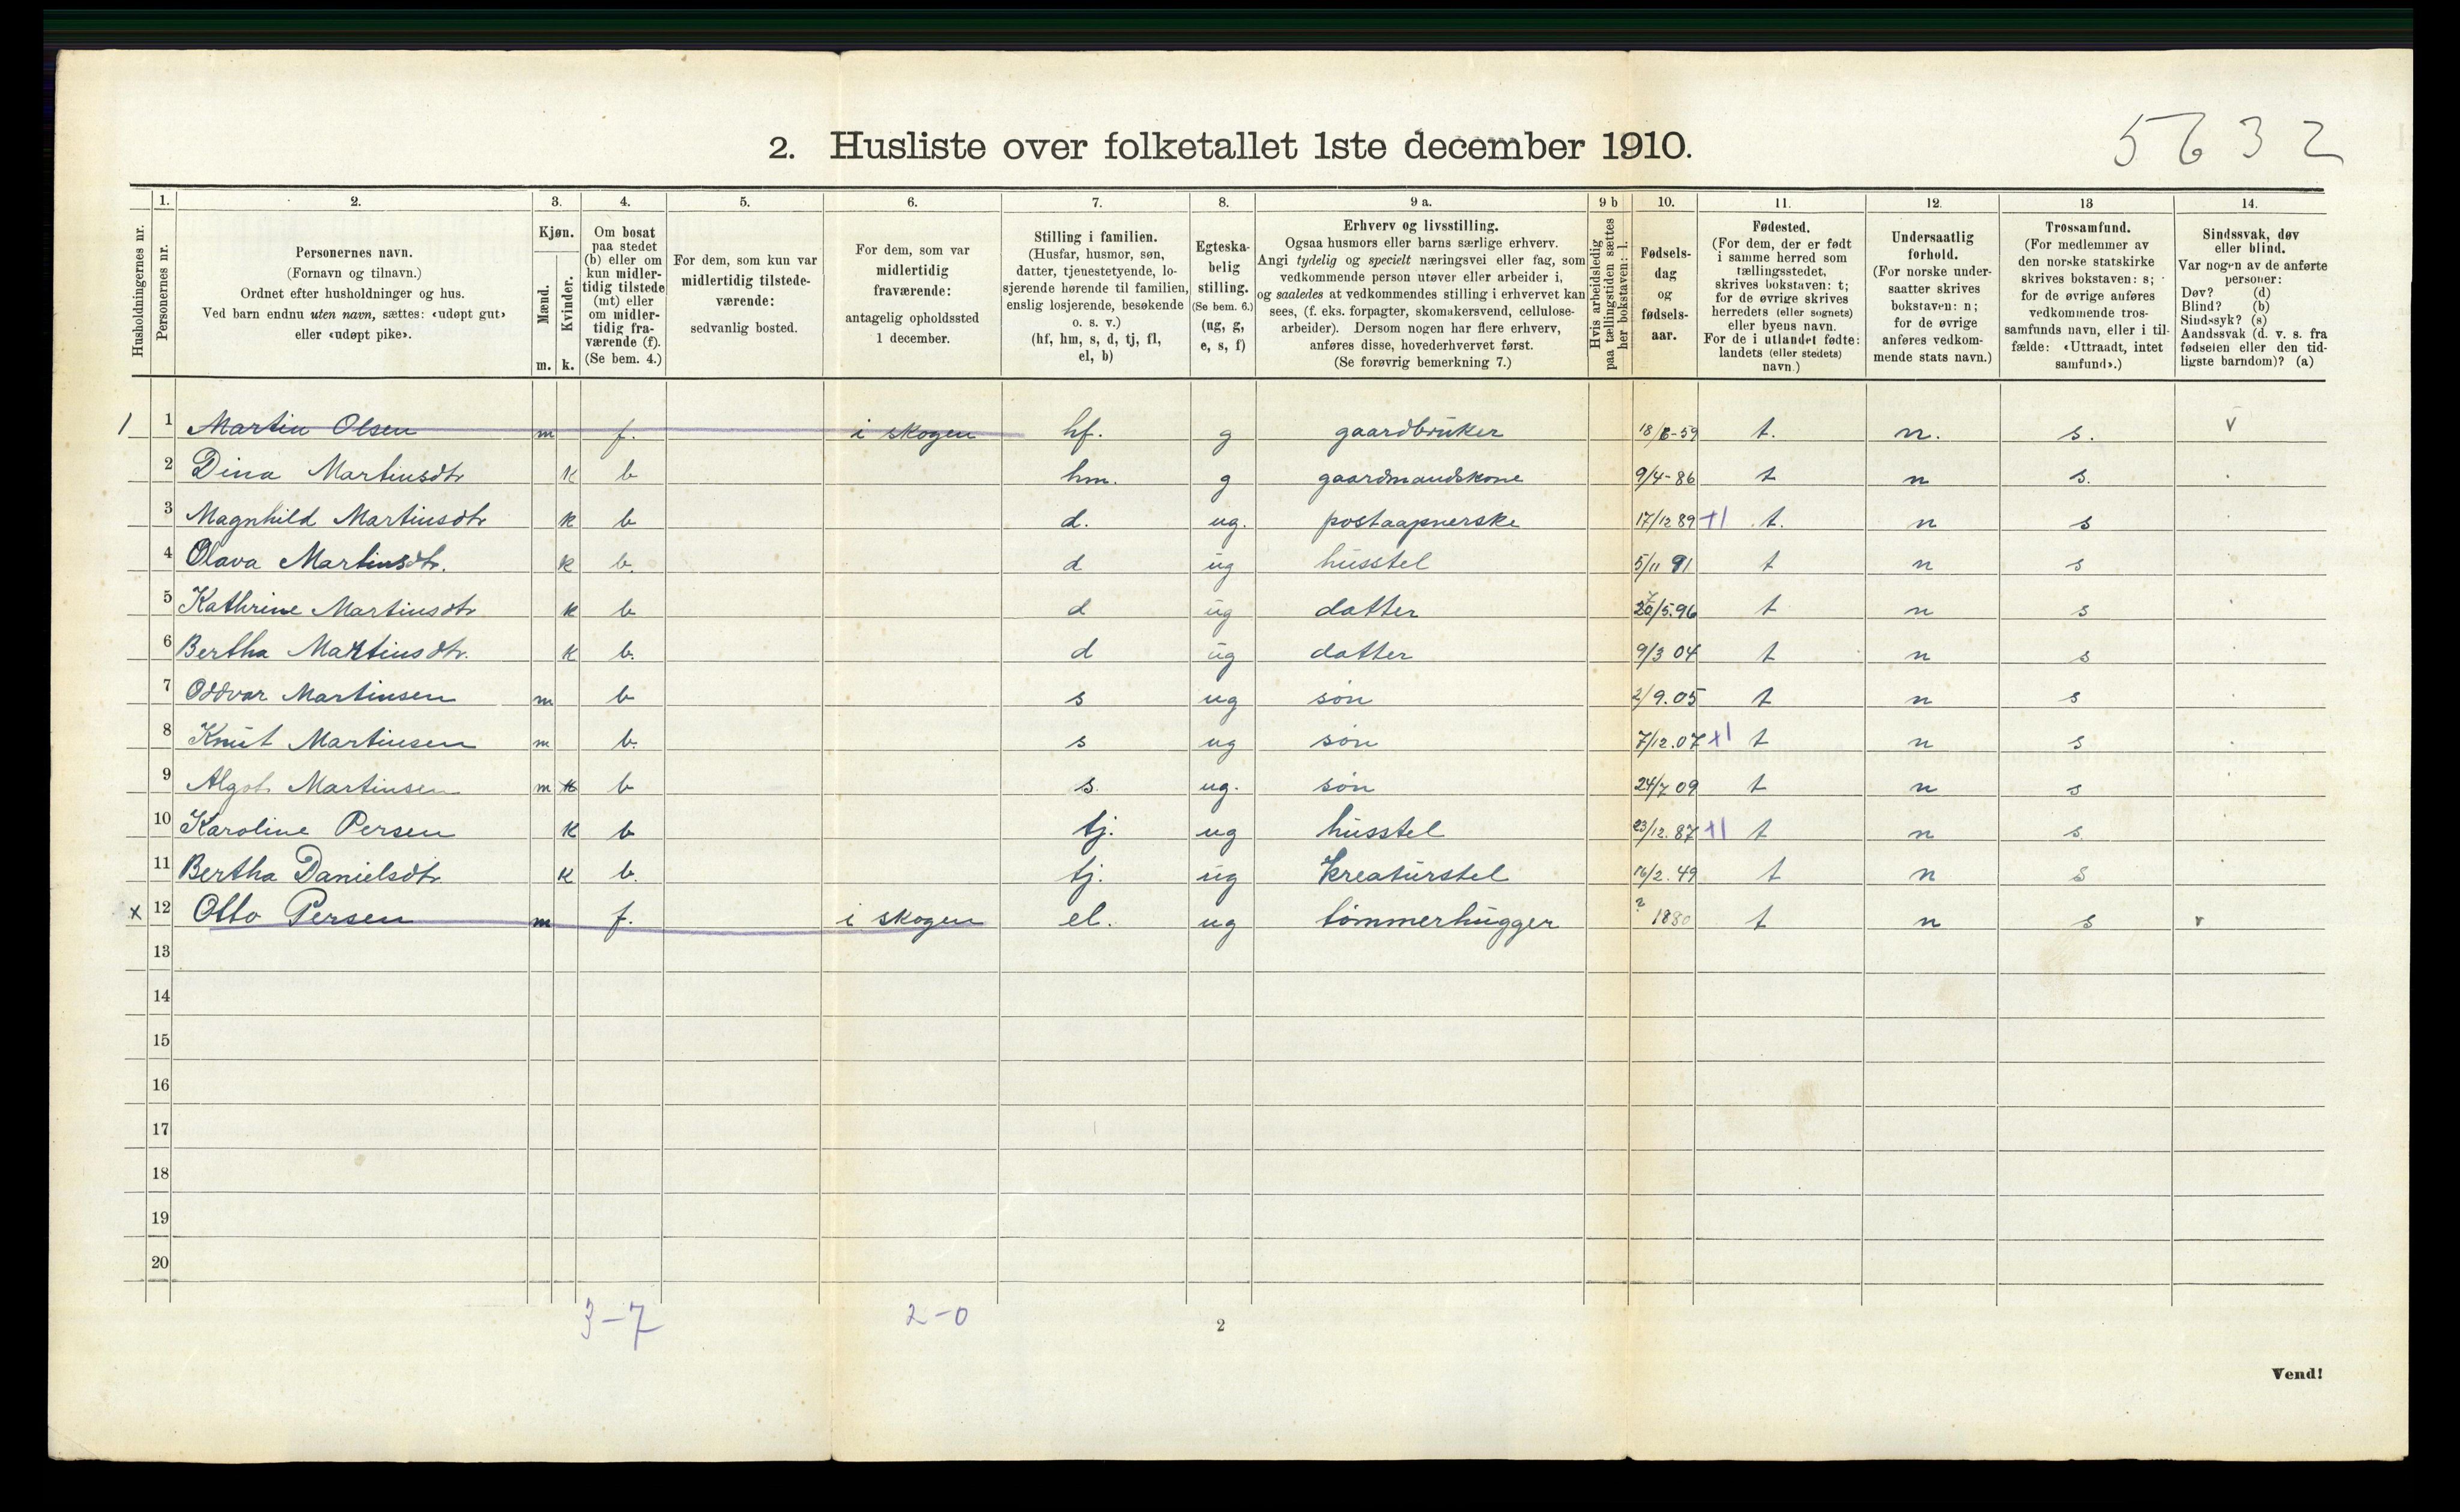 5632
2. Husliste over folketallet 1ste december 1910.
Husholdningernes nr.
1. Personernes nr.
2. Personernes navn. (Fornavn og tilnavn.) Ordnet efter husholdninger og hus. Ved barn endnu uten navn, sættes: «udøpt gut» eller «udøpt pike».
3. Kjøn. Mænd. m. Kvinder. k.
4. Om bosat paa stedet (b) eller om kun midlertidig tilstede (mt) eller om midlertidig fraværende (f). (Se bem. 4.)
5. For dem, som kun var midlertidig tilstedeværende: sedvanlig bosted.
6. For dem, som var midlertidig fraværende: antagelig opholdssted 1 december.
7. Stilling i familien. (Husfar, husmor, søn, datter, tjenestetyende, losjerende hørende til familien, enslig losjerende, besøkende o. s. v.) (hf, hm, s, d, tj, fl, el, b)
8. Egteskabelig stilling. (Se bem. 6.) (ug, g, e, s, f)
9 a. Erhverv og livsstilling. Ogsaa husmors eller barns særlige erhverv. Angi tydelig og specielt næringsvei eller fag, som vedkommende person utøver eller arbeider i, og saaledes at vedkommendes stilling i erhvervet kan sees, (f. eks. forpagter, skomakersvend, cellulosearbeider). Dersom nogen har flere erhverv, anføres disse, hovederhvervet først. (Se forøvrig bemerkning 7.)
9 b Hvis arbeidsledig paa tællingstiden sættes her bokstaven: l.
10. Fødselsdag og fødselsaar.
11. Fødested. (For dem, der er født i samme herred som tællingsstedet, skrives bokstaven: t; for de øvrige skrives herredets (eller sognets) eller byens navn. For de i utlandet fødte: landets (eller stedets) navn.)
12. Undersaatlig forhold. (For norske undersaatter skrives bokstaven: n; for de øvrige anføres vedkommende stats navn.)
13 Trossamfund. (For medlemmer av den norske statskirke skrives bokstaven: s; for de øvrige anføres vedkommende trossamfunds navn, eller i tilfælde: «Uttraadt, intet samfund».)
14. Sindssvak, døv eller blind. Var nogen av de anførte personer: Døv? (d) Blind? (b) Sindssyk? (s) Aandssvak (d. v. s. fra fødselen eller den tidligste barndom)? (a)
1 1 Martin Olsen m f. i skogen hf. g gaardbruker 18/8-59 t. n. s. v
2 Dina Martinsdtr k b hm. g gaardmandskone 9/4-86 t n s.
3 Magnhild Martinsdtr k b d. ug. postaapnerske 17/12 89 +1 t. n s
4 Olava Martinsdtr. k b. d ug husstel 5/11 91 t n s
5 Kathrine Martinsdtr k b d ug datter 27/5.96 t n s
6 Bertha Martinsdtr. k b. d ug datter 9/3 04 t n s
7 Oddvar Martinsen m b s ug søn 2/9.05 t n s
8 Knut Martinsen m b. s ug søn 7/12.07 +1 t n s
9 Algot Martinsen m k b s. ug. søn 24/7 09 t n s
10 Karoline Persen k b tj. ug husstel 23/12.87 +1 t n s
11 Bertha Danielsdtr. k b. tj. ug kreaturstel 16/2.49 t n s
x 12 Otto Persen m f. i skogen el. ug tømmerhugger ? 1880 t n s v
13
14
15
16
17
18
19
20
3-7 2-0
2
Vend!